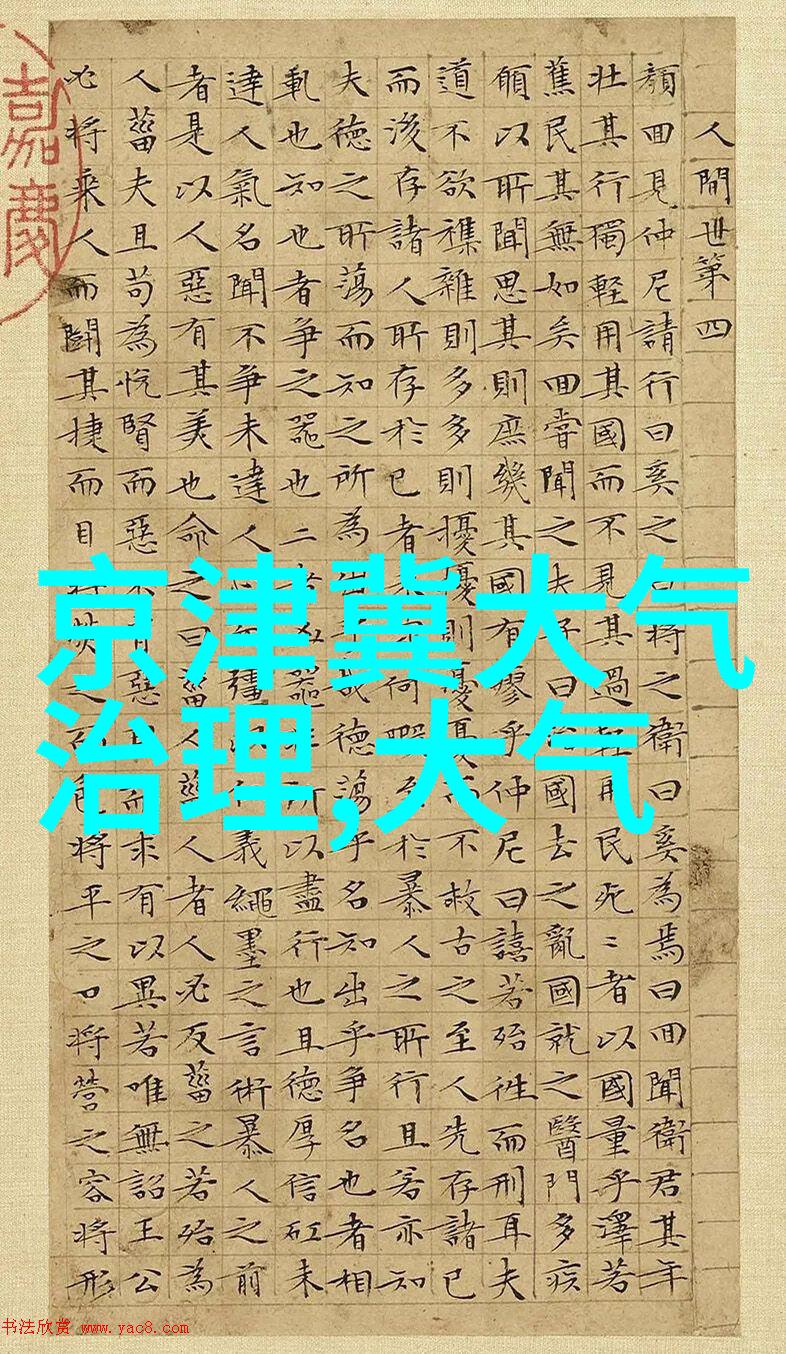 人間世第四
顔回見仲尼請行曰奚之曰將之衛曰奚為焉曰回聞衛君其年
壯其行獨輕用其國而不見其過輕用民死〻者以國量乎澤若
蕉民其無如矣回嘗聞之夫子曰治國去之亂國就之醫門多疾
願以所聞思其則庶幾其國有瘳乎仲尼曰譆若殆往而刑耳夫
道不欲襍雜則多多則擾擾則憂憂而不救古之至人先存諸已
而後存諸人所存於已者未定何暇至於暴人之所行且若亦知
夫德之所蕩而知之所為出乎哉德蕩乎名知出乎爭名也者相
軋也知也者爭之器也二者凶器非所以盡行也且德厚信矼未
達人氣名聞不爭未達人心而彊以仁義繩墨之言術暴人之前
者是以人惡有其美也命之曰菑人菑人者人必反菑之若殆為
人菑夫且苟為悅賢而惡不肖惡用而求有以異若唯無詔王公
必將乘人而鬭其捷而目將熒之而色將平之口將營之容將形
嘉慶
京津冀大气
治理,大气
书法欣赏 www.yac8.com